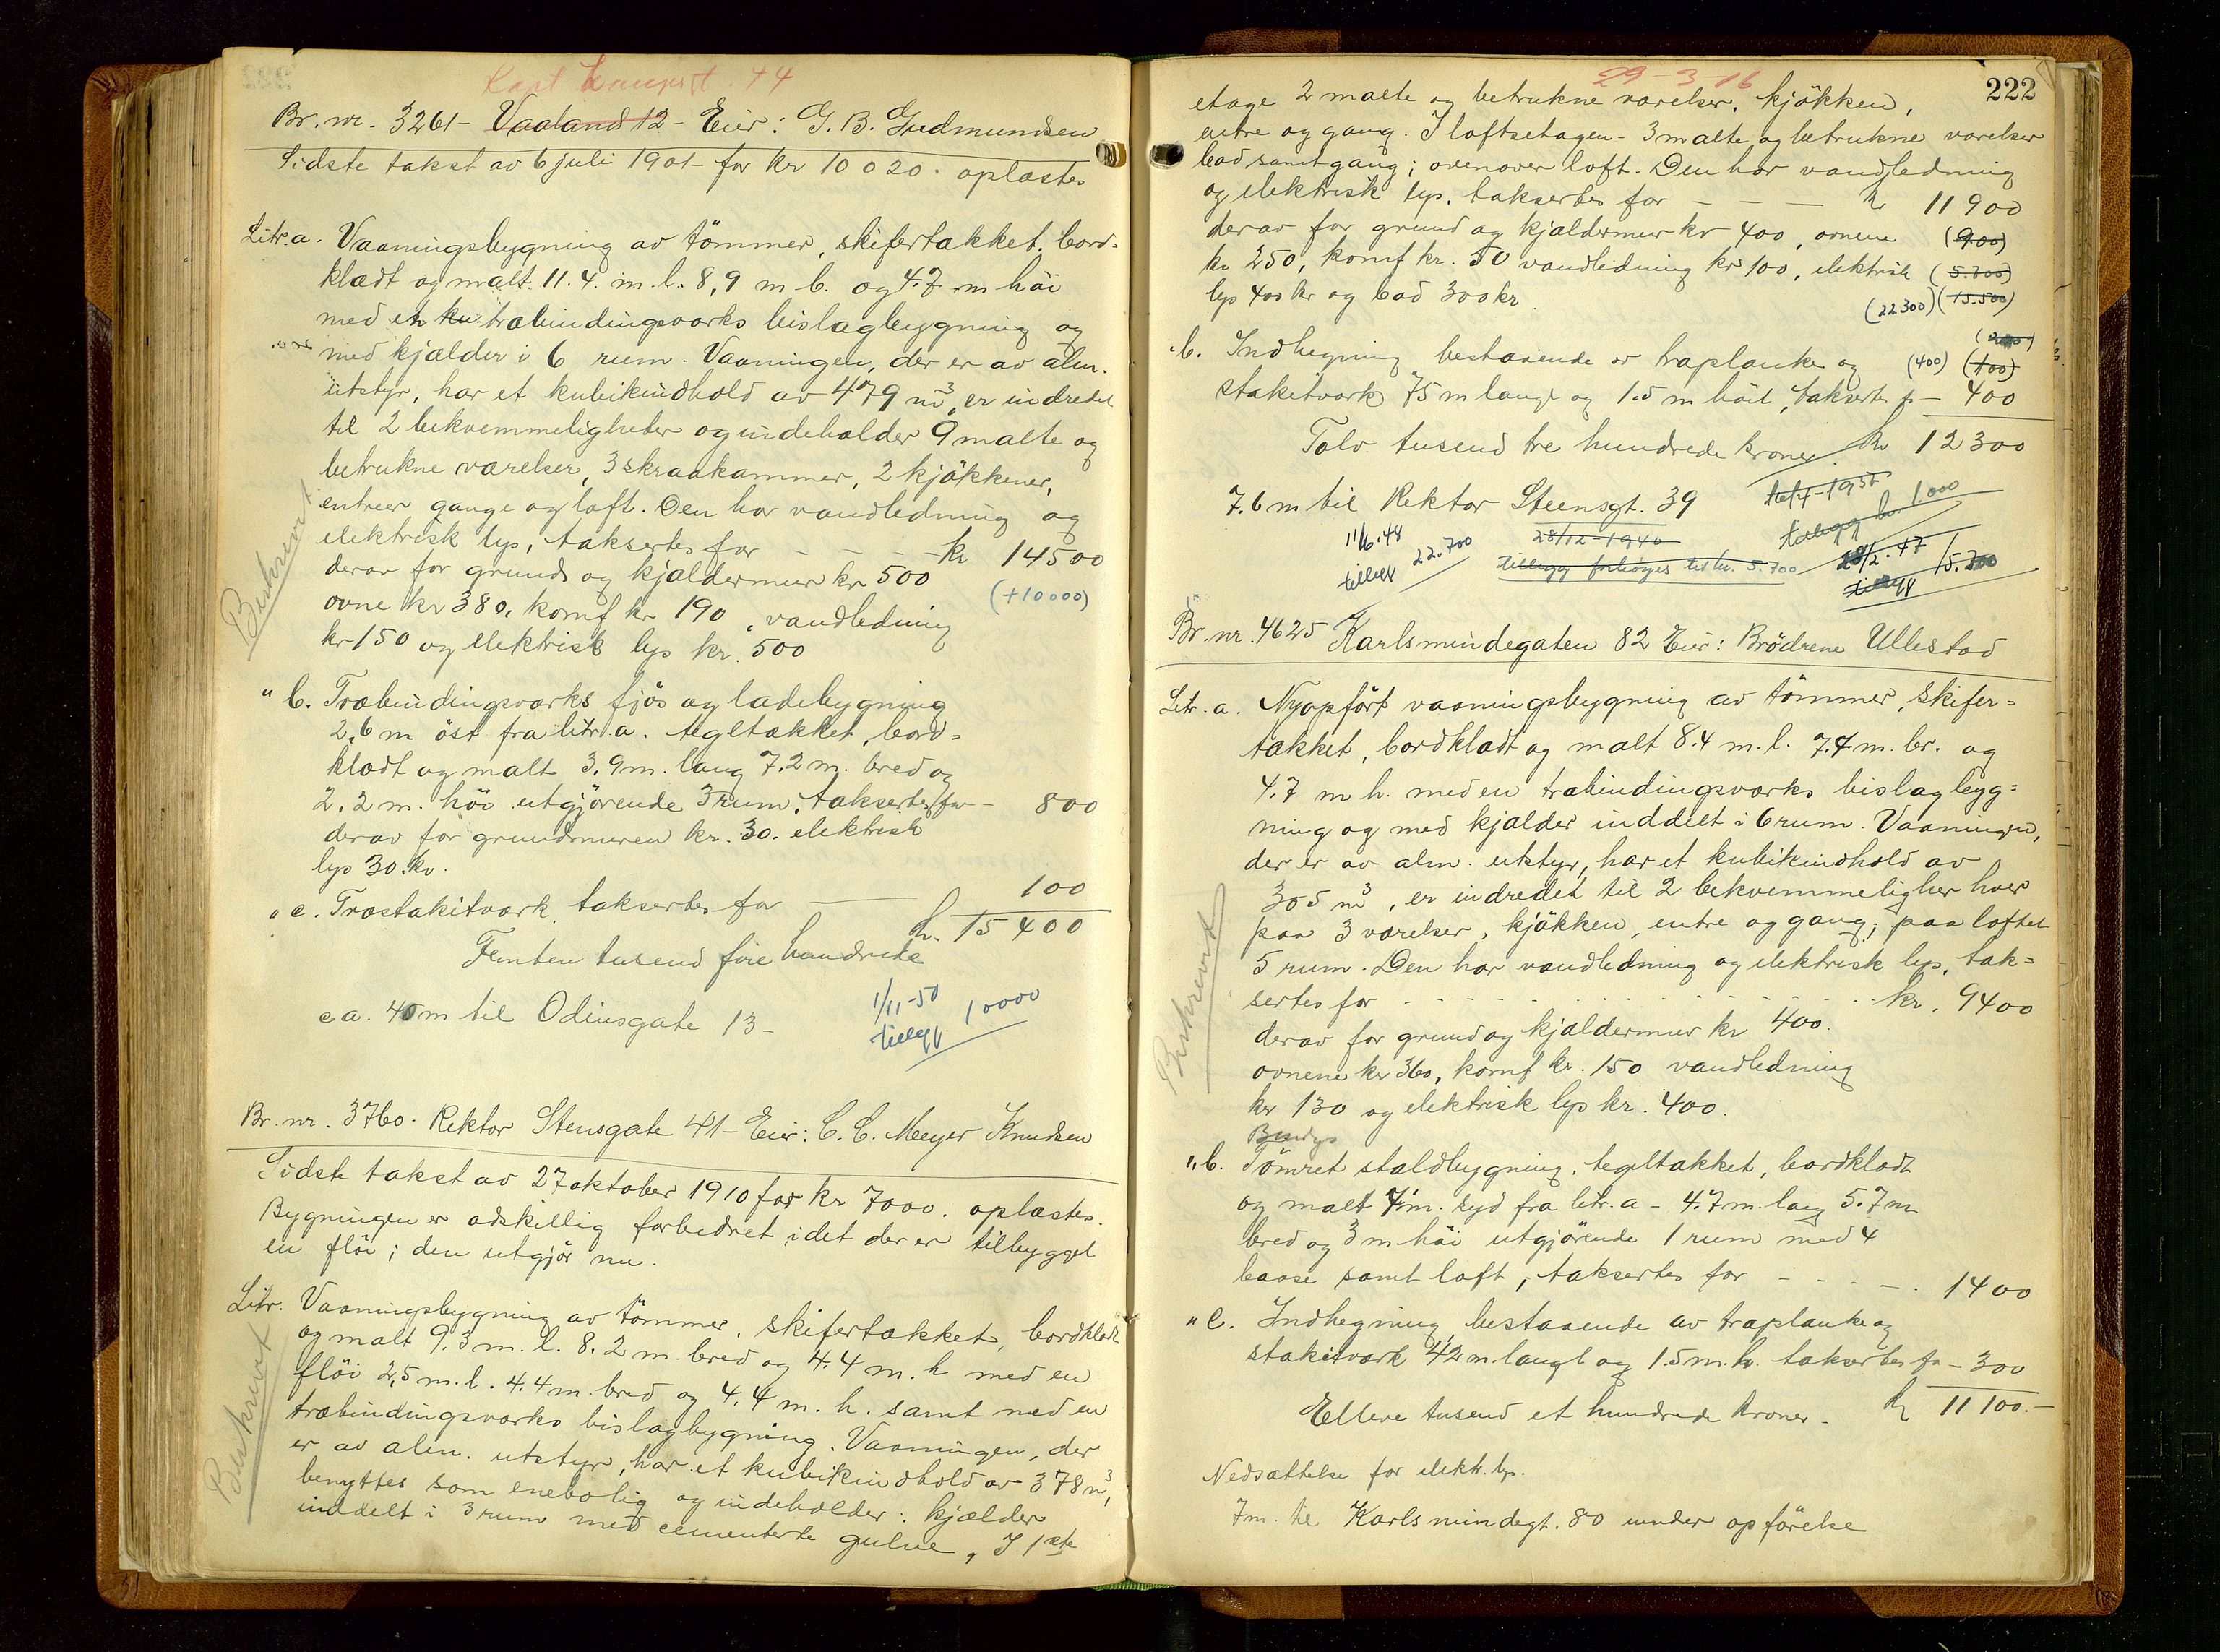 Br. nr. 3261 - Vaaland 12 - Eier: G. B. Gudmundsen
Sidste takst av 6 juli 1901 for kr 10020. oplæstes
Litr. a. Vaaningsbygning av tömmer, skifertækket, bord-
klædt og malt 11.4. m. l. 8,9 m b. og 4.7 m höi
med en træbindingsværks bislagbygning og
med kjælder i 6 rum. Vaaningen, der er av alm.
utstyr, har et kubikindhold av 479 m³, er indredet
til 2 bekvemmeligheter og indeholder 9 malte og
betrukne værelser, 3 skraakammer, 2 kjökkener,
entreer gange og loft. Den har vandledning og
elektrisk lys, taksertes for - - - - kr 14500
derav for grund og kjældermur kr 500
(+10000)
ovne kr 380, komf kr 190, vandledning
kr 150 og elektrisk lys kr. 500
Beskrevet
" b. Træbindingsværks fjös og ladebygning
2,6 m öst fra litr. a. tegltækket, bord=
klædt og malt 3.9 m. lang 7.2 m. bred og
2.2 m. höi utgjörende 3 rum, taksertes for - 800
derav for grundmuren kr. 30. elektrisk
lys 30 kr.
" c. Træstakitværk taksertes for - 100
kr. 15400
Femten tusend fire hundrede
ca. 40 m til Odinsgate 13 -
1/11-50
tillegg 10000
Br. nr. 3760. Rektor Stensgate 41 - Eier: C. C. Meyer Knudsen
Sidste takst av 27 oktober 1910 for kr 7000. oplæstes.
Bygningen er adskillig forbedret, idet der er tilbygget
en flöi; den utgjör nu.
Litr. Vaaningsbygning av tömmer, skifertækket, bordklædt
og malt 9.3 m. l. 8.2 m. bred og 4.4 m. h med en
flöi 2,5 m. l. 4.4 m. bred og 4.4 m. h. samt med en
træbindingsværks bislagbygning. Vaaningen, der
er av alm. utstyr, har et kubikindhold av 378 m³,
benyttes som enebolig og indeholder: kjælder
inddelt i 3 rum med cementerte gulve, I 1ste
Beskrevet
29-3-16
222
etage 2 malte og betrukne værelser, kjökken,
entre og gang. I loftsetagen - 3 malte og betrukne værelser
bad samt gang; ovenover loft. Den har vandledning
og elektrisk lys, taksertes for - - - kr 11900
derav for grund og kjældermur kr 400, ovnene (900)
kr 250, komf kr. 50 vandledning kr 100, elektrisk (5.700)
lys 400 kr og bad 300 kr. (22300) (15.500)
" b. Indhegning bestaaende av træplanke og (400) (100)
staketværk 75 m langt og 1.5 m höit, taksertes for - 400
Tolv tusend tre hundrede kroner kr 12300
7.6 m til Rektor Steensgt. 39
16/4-1955
tillegg kr. 1.000
11/6.48
tillegg 22.700
28/12-1940
tillegg forhöyes til kr. 5.700
28/2.47
tillegg 15.700
Br. nr. 4625 Karlsmindegaten 82 Eier: Brödrene Ullestad
Litr. a. Nyopfört vaaningsbygning av tömmer, skifer=
tækket, bordklædt og malt 8.4 m. l. 7.7 m. br. og
4.7 m h. med en træbindingsværks bislagbyg=
ning og med kjælder inddelt i 6 rum. Vaaningen,
der er av alm. utstyr, har et kubikindhold av
305 m³, er indredet til 2 bekvemmeligheer hver
paa 3 værelser, kjökken, entre og gang; paa loftet
5 rum. Den har vandledning og elektrisk lys, tak=
sertes for - - - - kr. 9400
derav for grund og kjældermur kr 400.
ovnene kr 360, komf kr. 150 vandledning
kr 130 og elektrisk lys kr. 400.
Beskrevet
" b. Tömret staldbygning, tegltækket, bordklædt
og malt 7 m. syd fra litr. a - 4.7 m. lang 5.7 m
bred og 3 m höi utgjörende 1 rum med 4
baase samt loft, taksertes for - - - - 1400
" c. Indhegning, bestaaende av træplanke og
staketværk 42 m. langt og 1.5 m. h. taksertes for - 300
kr 11100.-
Elleve tusend et hundrede kroner -
Nedsættelse for elektr. lys.
7 m. til Karlsmindegt. 80 under opförelse